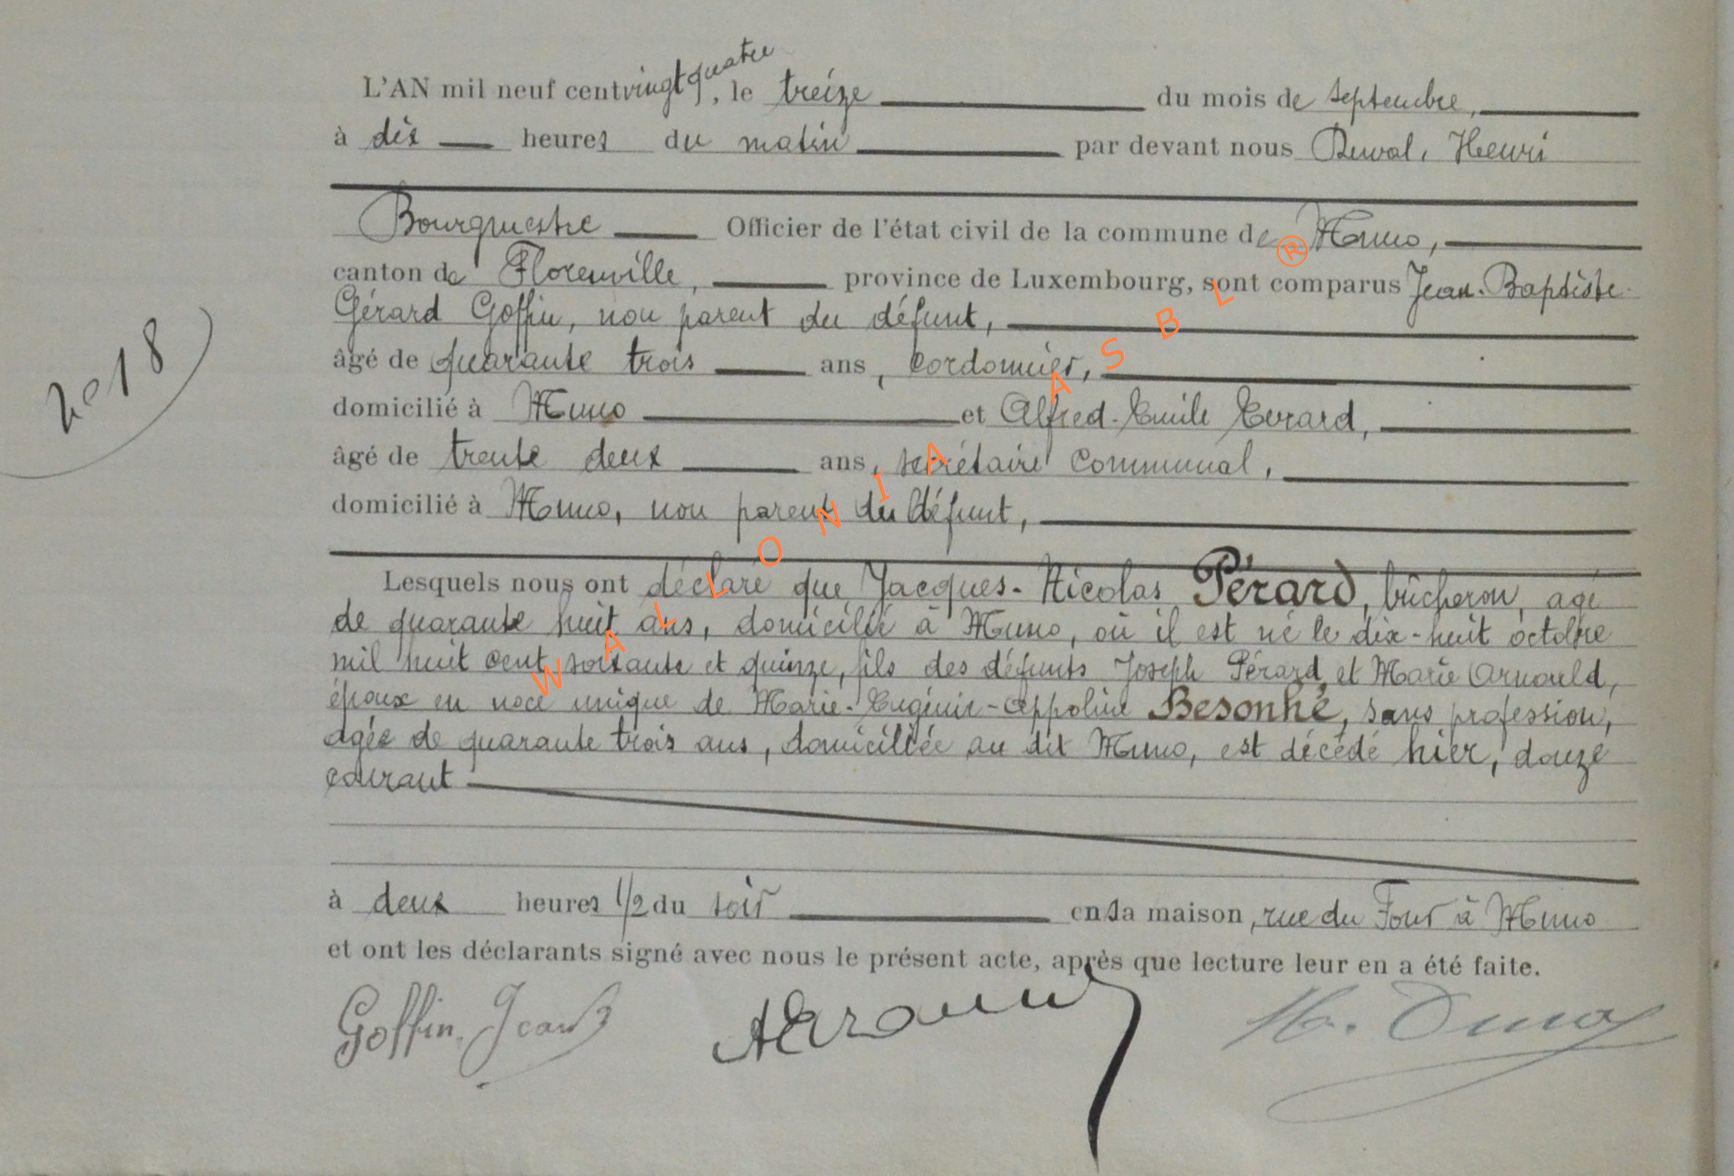 L'AN mil neuf cent vingt quatre, le treize du mois de septembre,
à dix heures du matin par devant nous Duval, Henri
Bourgmestre Officier de l'état civil de la commune de Muno,
canton de Florenville, province de Luxembourg, sont comparus Jean-Baptiste-
Gérard Goffin, non parent du défunt,
âgé de quarante trois ans, cordonnier,
domicilié à Muno et Alfred-Emile Evrard,
âgé de trente deux ans, secrétaire communal,
domicilié à Muno, non parent du défunt,
2018
Lesquels nous ont déclaré que Jacques-Nicolas Pérard, bûcheron, agé
de quarante huit ans, domicilié à Muno, où il est né le dix-huit octobre
mil huit cent soixante et quinze, fils des défunts Joseph Pérard et Marie Arnould,
époux en noce unique de Marie-Eugénie-Appoline Besonhé, sans profession,
agée de quarante trois ans, domiciliée au dit Muno, est décédé hier, douze
courant
à deux heures 1/2 du soir en sa maison, rue du Four à Muno
et ont les déclarants signé avec nous le présent acte, après que lecture leur en a été faite.
Goffin Jean B
H. Duval
WALLONIA ASBL ®